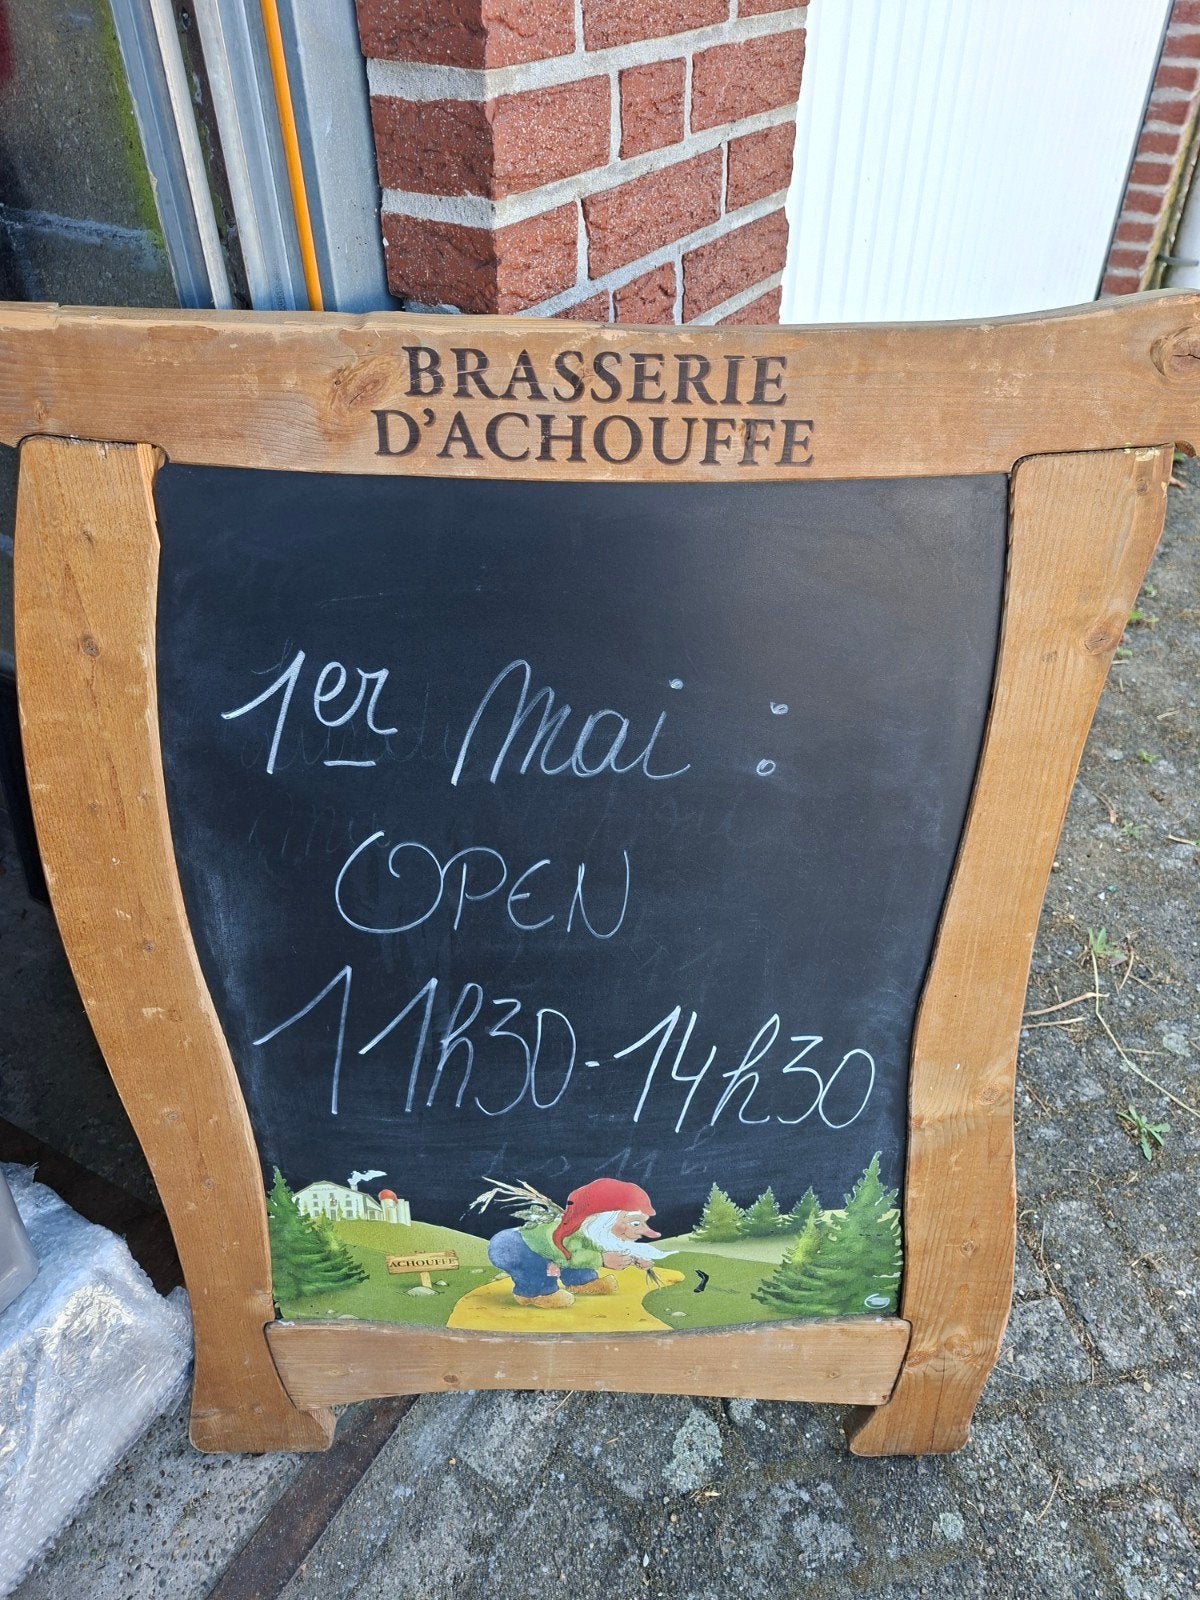 BRASSERIE
D'ACHOUFFE
1er Mai :
OPEN
11h30-14h30
ACHOUFFE